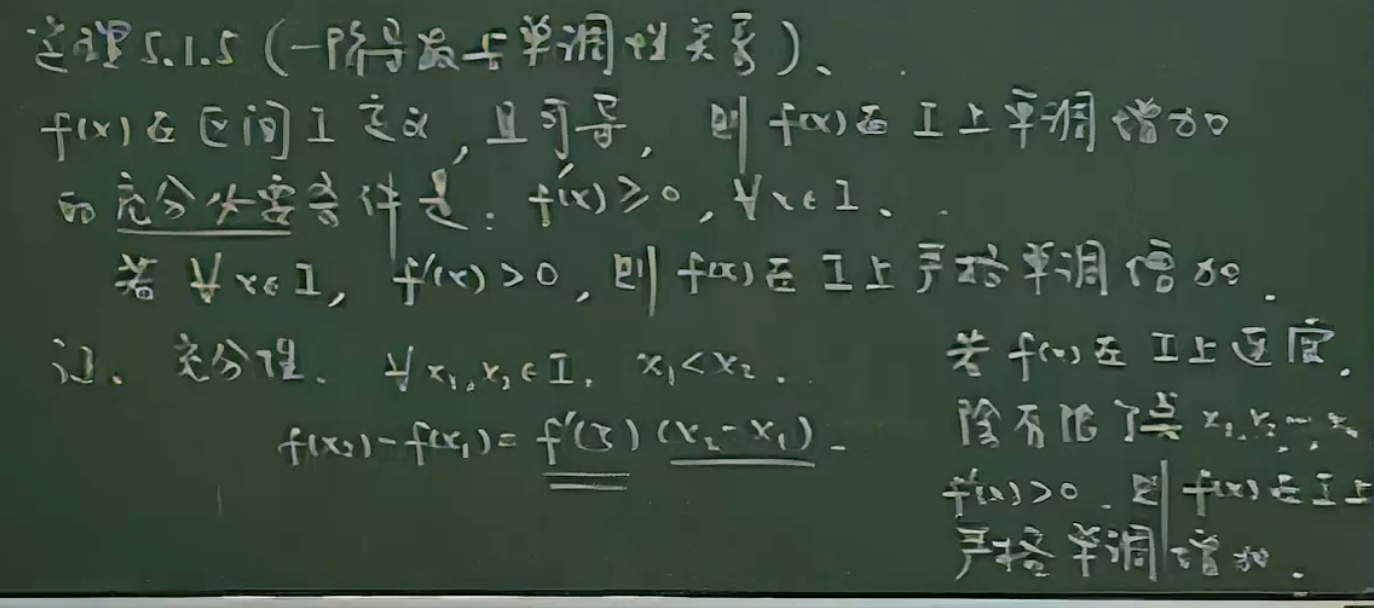 定理5.1.5(一阶导数与单调性关系).
f(x)在区间I定义,且可导,则f(x)在I上单调增加
的充分必要条件是:f'(x)≥0,∀x∈I.
若∀x∈I,f'(x)>0,则f(x)在I上严格单调增加.
证.充分性.∀x₁,x₂∈I,x₁<x₂.
f(x₂)-f(x₁)=f'(ξ)(x₂-x₁).
若f(x)在I上连续.
除有限个点x₁,x₂,…,
f'(x)>0.则f(x)在I上
严格单调增加.